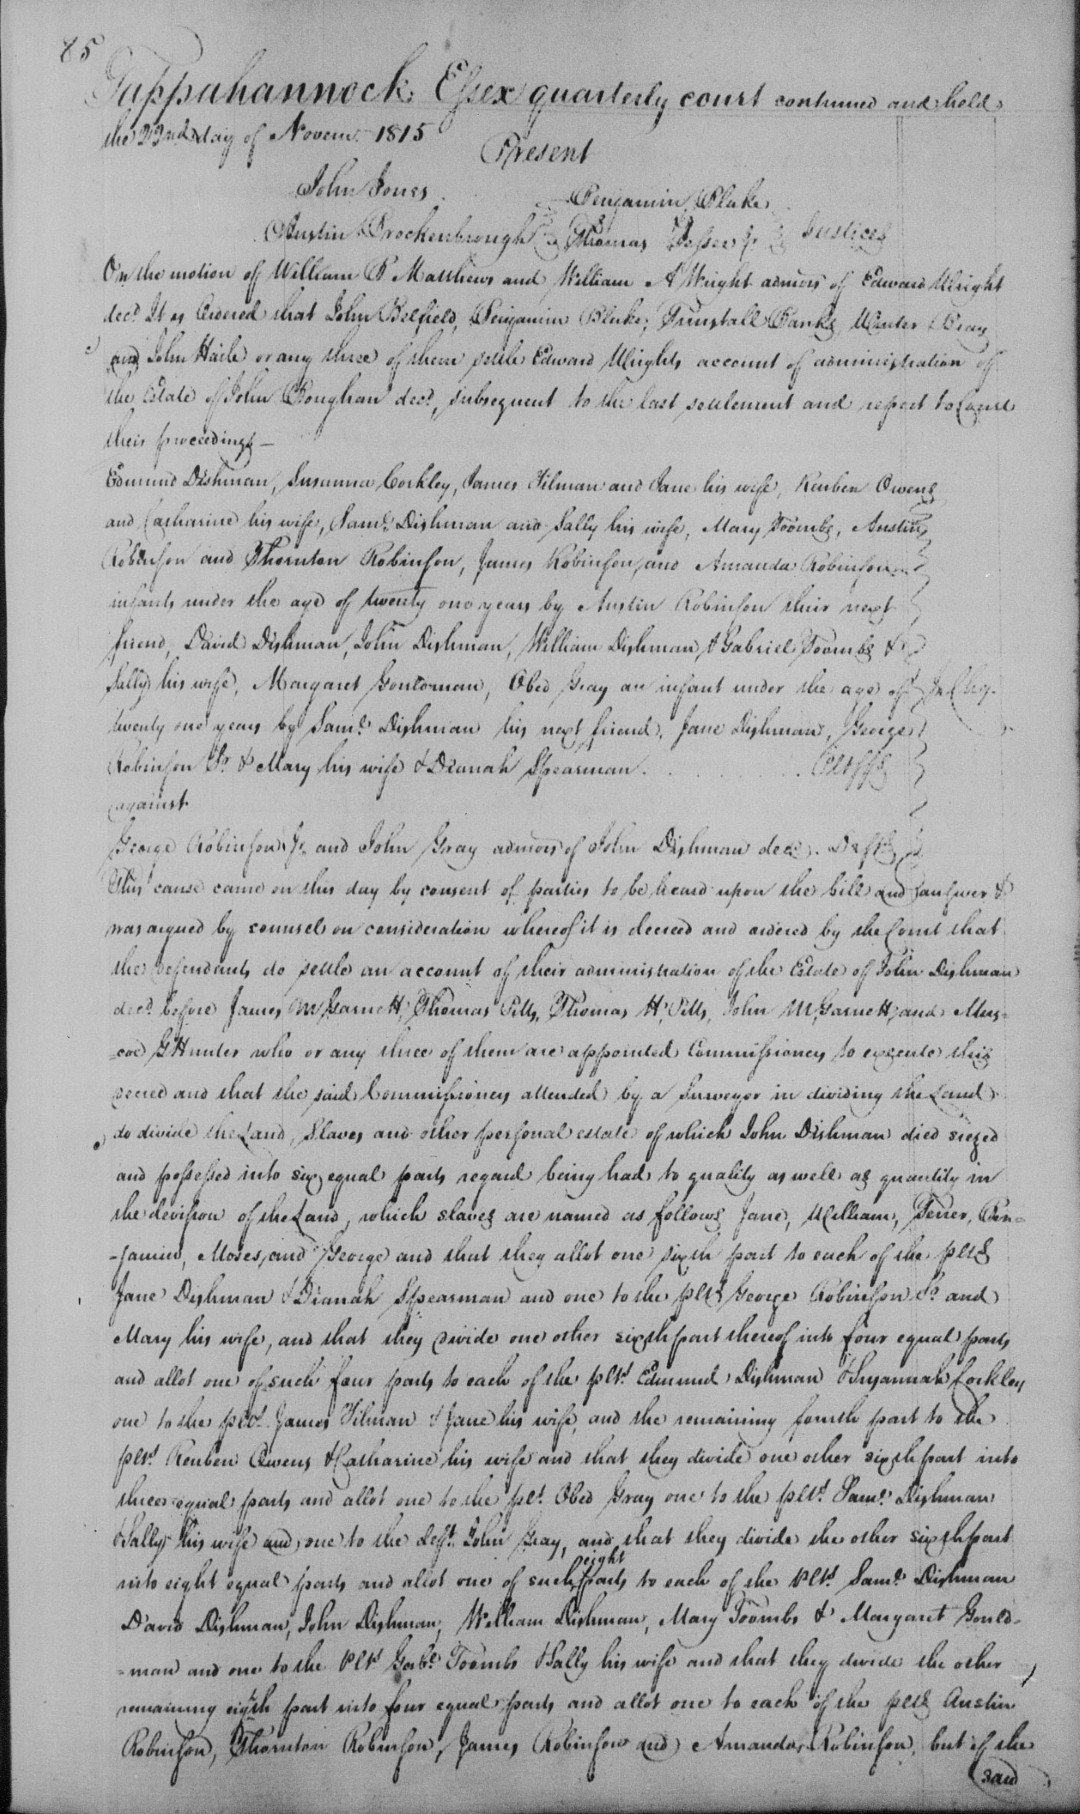 85
Tappahannock Essex quarterly court continued and held
the 22nd day of Novem. 1815
Present
John Jones Benjamin Blake
Austin Brockenbrough Thomas Justices
On the motion of William B Matthews and William A Wright admors of Edward Wright
decd. It is Ordered that John Belfield, Benjamin Blake, Tunstall Banks, Winter Bray
and John Haile or any three of them settle Edward Wrights account of administration of
the Estate of John Boughan decd., subsequent to the last settlement and report to Court
their proceedings —
Edmund Dishman, Susanna Cockley, James Tilman and Jane his wife, Reuben Owens
and Catharine his wife, Saml. Dishman and Sally his wife, Mary Toombs, Austin
Robinson and Thornton Robinson, James Robinson, and Amanda Robinson
infants under the age of twenty one years by Austin Robinson their next
friend, David Dishman, John Dishman, William Dishman, & Gabriel Toombs &
Sally his wife, Margaret Gouldman, Obed Gray an infant under the age of In Chy.
twenty one years by Saml. Dishman his next friend, Jane Dishman, George
Robinson Sr. & Mary his wife & Dianah Spearman . . . . . . . Pltffs
against
George Robinson Jr. and John Gray admors of John Dishman decd. Defts
This cause came on this day by consent of parties to be heard upon the bill and answer &
was argued by counsel on consideration whereof it is decreed and ordered by the Court that
the defendants do settle an account of their administration of the Estate of John Dishman
decd. before James M Garnett, Thomas Pitts, Thomas H. Pitts, John M Garnett, and Mus=
=coe G Hunter who or any three of them are appointed Commissioners to execute this
decree and that the said Commissioners attended by a Surveyor in dividing the Land
do divide the Land, Slaves and other personal estate of which John Dishman died siezed
and possessed into six equal parts regard being had to quality as well as quantity in
the devision of the Land, which slaves are named as follows Jane, William, Ben=
=jamin, Moses, and George and that they allot one sixth part to each of the plts
Jane Dishman & Dianah Spearman and one to the plts George Robinson Sr. and
Mary his wife, and that they divide one other sixth part thereof into four equal parts
and allot one of such four parts to each of the plts. Edmund Dishman & Susannah Cockley
one to the plts. James Tilman & Jane his wife, and the remaining fourth part to the
plts. Reuben Owens & Catharine his wife and that they divide one other sixth part into
three equal parts and allot one to the plt. Obed Gray one to the plts. Saml. Dishman
& Sally his wife and one to the deft. John Gray, and that they divide the other sixth part
into eight equal parts and allot one of such eight parts to each of the plts. Saml. Dishman
David Dishman, John Dishman, William Dishman, Mary Toombs & Margaret Gould=
=man and one to the plts Gabl. Toombs & Sally his wife and that they divide the other
remaining eighth part into four equal parts and allot one to each of the plts Austin
Robinson, Thornton Robinson, James Robinson and Amanda Robinson, but if the
said